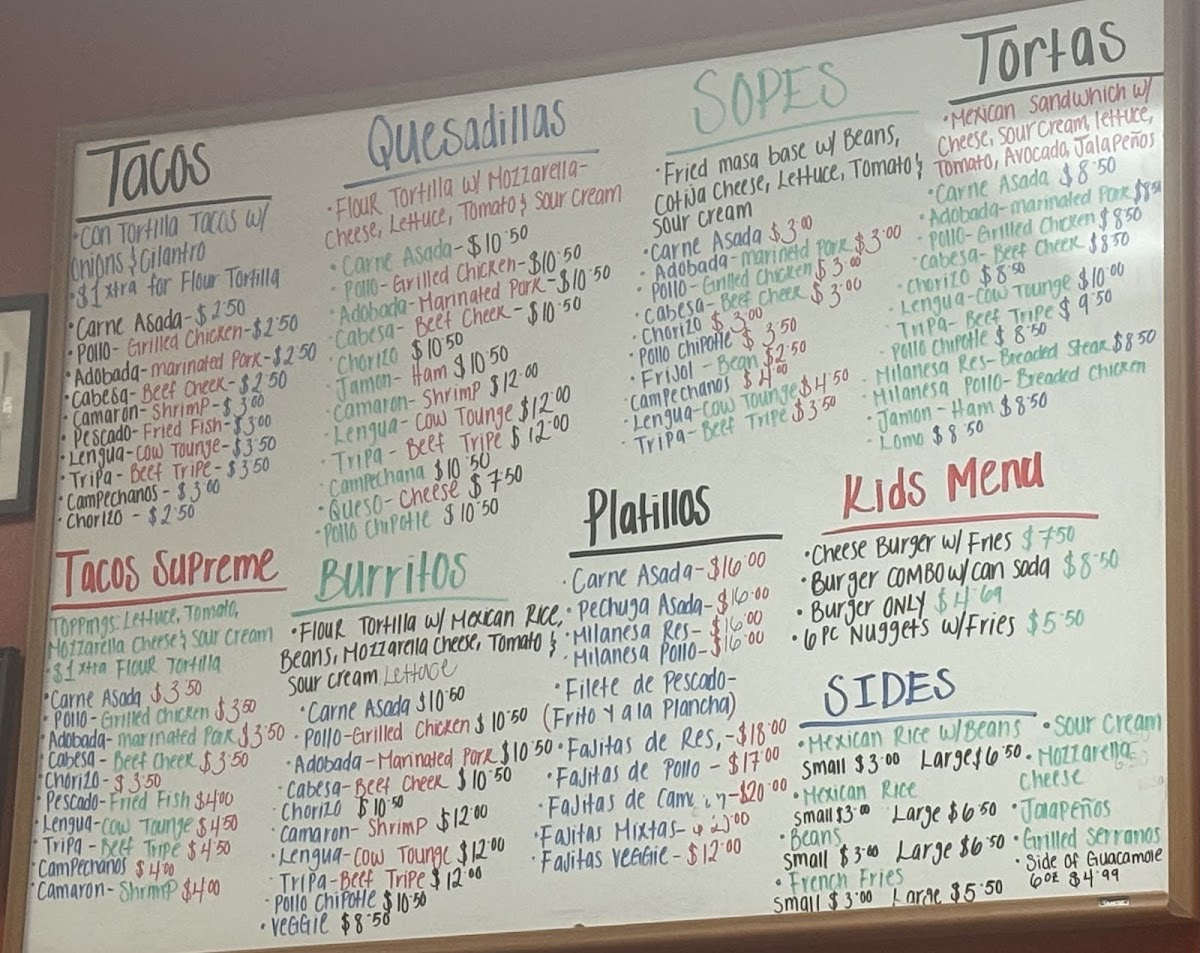 Tacos
•Con Tortilla Tacos w/
Onions & Cilantro
•$1 xtra for Flour Tortilla
•Carne Asada-$2.50
•Pollo-Grilled Chicken-$2.50
•Adobada-marinated Pork-$2.50
•Cabesa-Beef Cheek-$2.50
•Camaron-Shrimp-$3.00
•Pescado-Fried Fish-$3.00
•Lengua-Cow Tounge-$3.50
•Tripa-Beef Tripe-$3.50
•Campechanos-$3.00
•Chorizo-$2.50
Tacos Supreme
Toppings: Lettuce, Tomato,
Mozzarella Cheese & Sour Cream
•$1 xtra Flour Tortilla
•Carne Asada $3.50
•Pollo-Grilled Chicken $3.50
•Adobada-marinated Pork $3.50
•Cabesa-Beef Cheek $3.50
•Chorizo-$3.50
•Pescado-Fried Fish $4.00
•Lengua-Cow Tounge $4.50
•Tripa-Beef Tripe $4.50
•Campechanos $4.00
•Camaron-Shrimp $4.00
Quesadillas
•Flour Tortilla w/ Mozzarella-
Cheese, Lettuce, Tomato & Sour Cream
•Carne Asada-$10.50
•Pollo-Grilled Chicken-$10.50
•Adobada-Marinated Pork-$10.50
•Cabesa-Beef Cheek-$10.50
•Chorizo $10.50
•Jamon-Ham $10.50
•Camaron-Shrimp $12.00
•Lengua-Cow Tounge $12.00
•Tripa-Beef Tripe $12.00
•Campechana $10.50
•Queso-Cheese $7.50
•Pollo Chipotle $10.50
Burritos
•Flour Tortilla w/ Mexican Rice,
Beans, Mozzarella Cheese, Tomato &
Sour cream Lettuce
•Carne Asada $10.50
•Pollo-Grilled Chicken $10.50
•Adobada-Marinated Pork $10.50
•Cabesa-Beef Cheek $10.50
•Chorizo $10.50
•Camaron-Shrimp $12.00
•Lengua-Cow Tounge $12.00
•Tripa-Beef Tripe $12.00
•Pollo Chipotle $10.50
•Veggie $8.50
SOPES
•Fried masa base w/ Beans,
Cotija Cheese, Lettuce, Tomato &
Sour cream
•Carne Asada $3.00
•Adobada-marineted Pork $3.00
•Pollo-Grilled Chicken $3.00
•Cabesa-Beef Cheek $3.00
•Chorizo $3.00
•Pollo Chipotle $3.50
•Frijol-Bean $2.50
•Campechanos $4.00
•Lengua-Cow Tounge $4.50
•Tripa-Beef Tripe $3.50
Platillos
•Carne Asada-$16.00
•Pechuga Asada-$16.00
•Milanesa Res-$16.00
•Milanesa Pollo-$16.00
•Filete de Pescado-
(Frito Y a la Plancha)
•Fajitas de Res,-$18.00
•Fajitas de Pollo-$17.00
•Fajitas de -$20.00
•Fajitas Mixtas-
•Fajitas Veggie-$12.00
Tortas
•Mexican Sandwhich w/
Cheese, Sour Cream, lettuce,
Tomato, Avocado, Jalapeños
•Carne Asada $8.50
•Adobada-marinated Pork $8.50
•Pollo-Grilled Chicken $8.50
•Cabesa-Beef Cheek $8.50
•Chorizo $8.50
•Lengua-Cow Tounge $10.00
•Tripa-Beef Tripe $9.50
•Pollo Chipotle $8.50
•Milanesa Res-Breaded Steak $8.50
•Milanesa Pollo-Breaded Chicken
•Jamon-Ham $8.50
•Lomo $8.50
Kids Menu
•Cheese Burger w/ Fries $7.50
•Burger COMBO w/can soda $8.50
•Burger ONLY $4.69
•6 PC Nuggets w/Fries $5.50
SIDES
•Mexican Rice w/Beans
Small $3.00 Large $6.50
•Mexican Rice
Small $3.00 Large $6.50
•Beans
Small $3.00 Large $6.50
•French Fries
Small $3.00 Large $5.50
•Sour Cream
•Mozzarella
Cheese
•Jalapeños
•Grilled Serranos
•Side of Guacamole
6oz $4.99